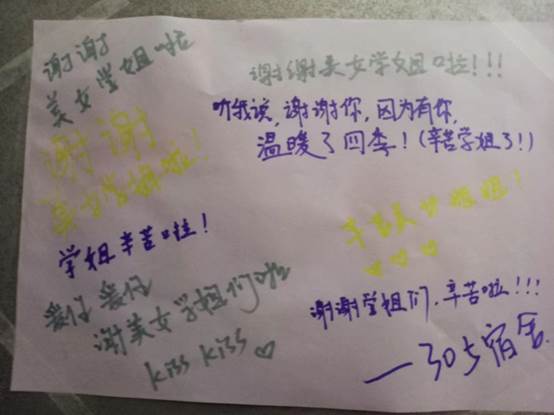 谢谢
美女学姐啦
谢谢美女学姐啦!!!
听我说,谢谢你,因为有你,
温暖了四季!(辛苦学姐了!)
谢谢
美女学姐啦!
学姐辛苦啦!
辛苦美女姐姐!
爱仔 爱仔
谢美女学姐们啦
kiss kiss ♡
谢谢学姐们,辛苦啦!!!
—305宿舍